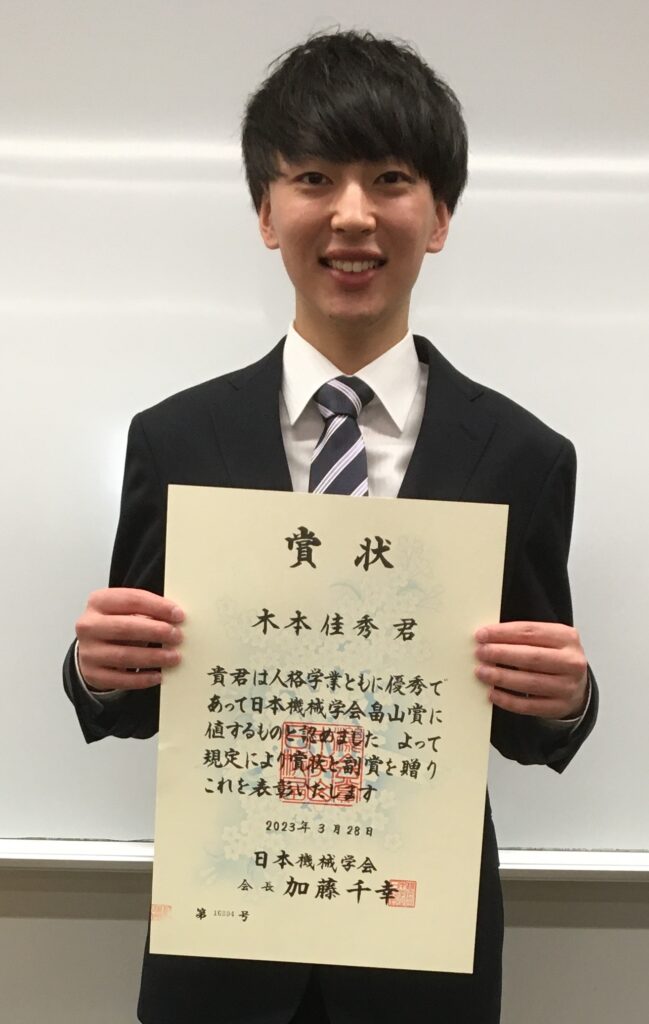 賞状
木本佳秀君
貴君は人格学業ともに優秀で
あって日本機械学会畠山賞に
値するものと認めました よって
規定により賞状と副賞を贈り
これを表彰いたします
2023年3月28日
日本機械学会
会長 加藤千幸
第 16804 号